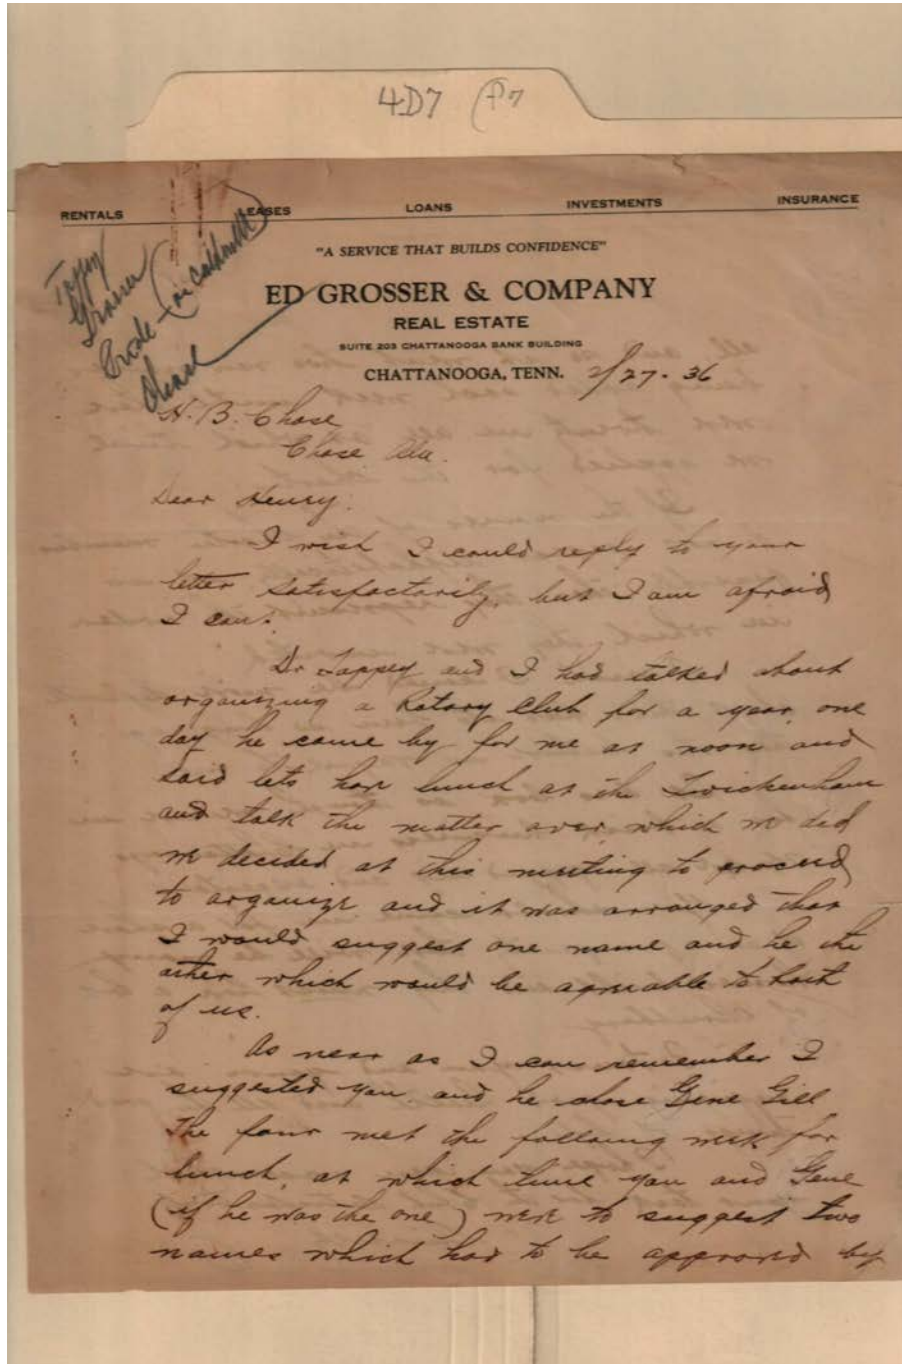 4D7 (P7
RENTALS LEASES LOANS INVESTMENTS INSURANCE
"A SERVICE THAT BUILDS CONFIDENCE"
ED GROSSER & COMPANY
REAL ESTATE
SUITE 203 CHATTANOOGA BANK BUILDING
CHATTANOOGA, TENN. 2/27-36
Tappey
Grosser
Erode - (or Caldwell)
Chase
H. B. Chase
Chase Ala.
Dear Henry:
I wish I could reply to your
letter satisfactorily, but I am afraid
I can't.
Dr Tappey and I had talked about
organizing a Rotary Club for a year, one
day he came by for me at noon and
said lets have lunch at the Twickenham
and talk the matter over which we did
we decided at this meeting to proceed
to organize and it was arranged that
I would suggest one name and he the
other which would be agreeable to both
of us.
As near as I can remember I
suggested you, and he chose Gene Gill
The four met the following week for
lunch, at which time you and Gene
(if he was the one) were to suggest two
names which had to be approved by